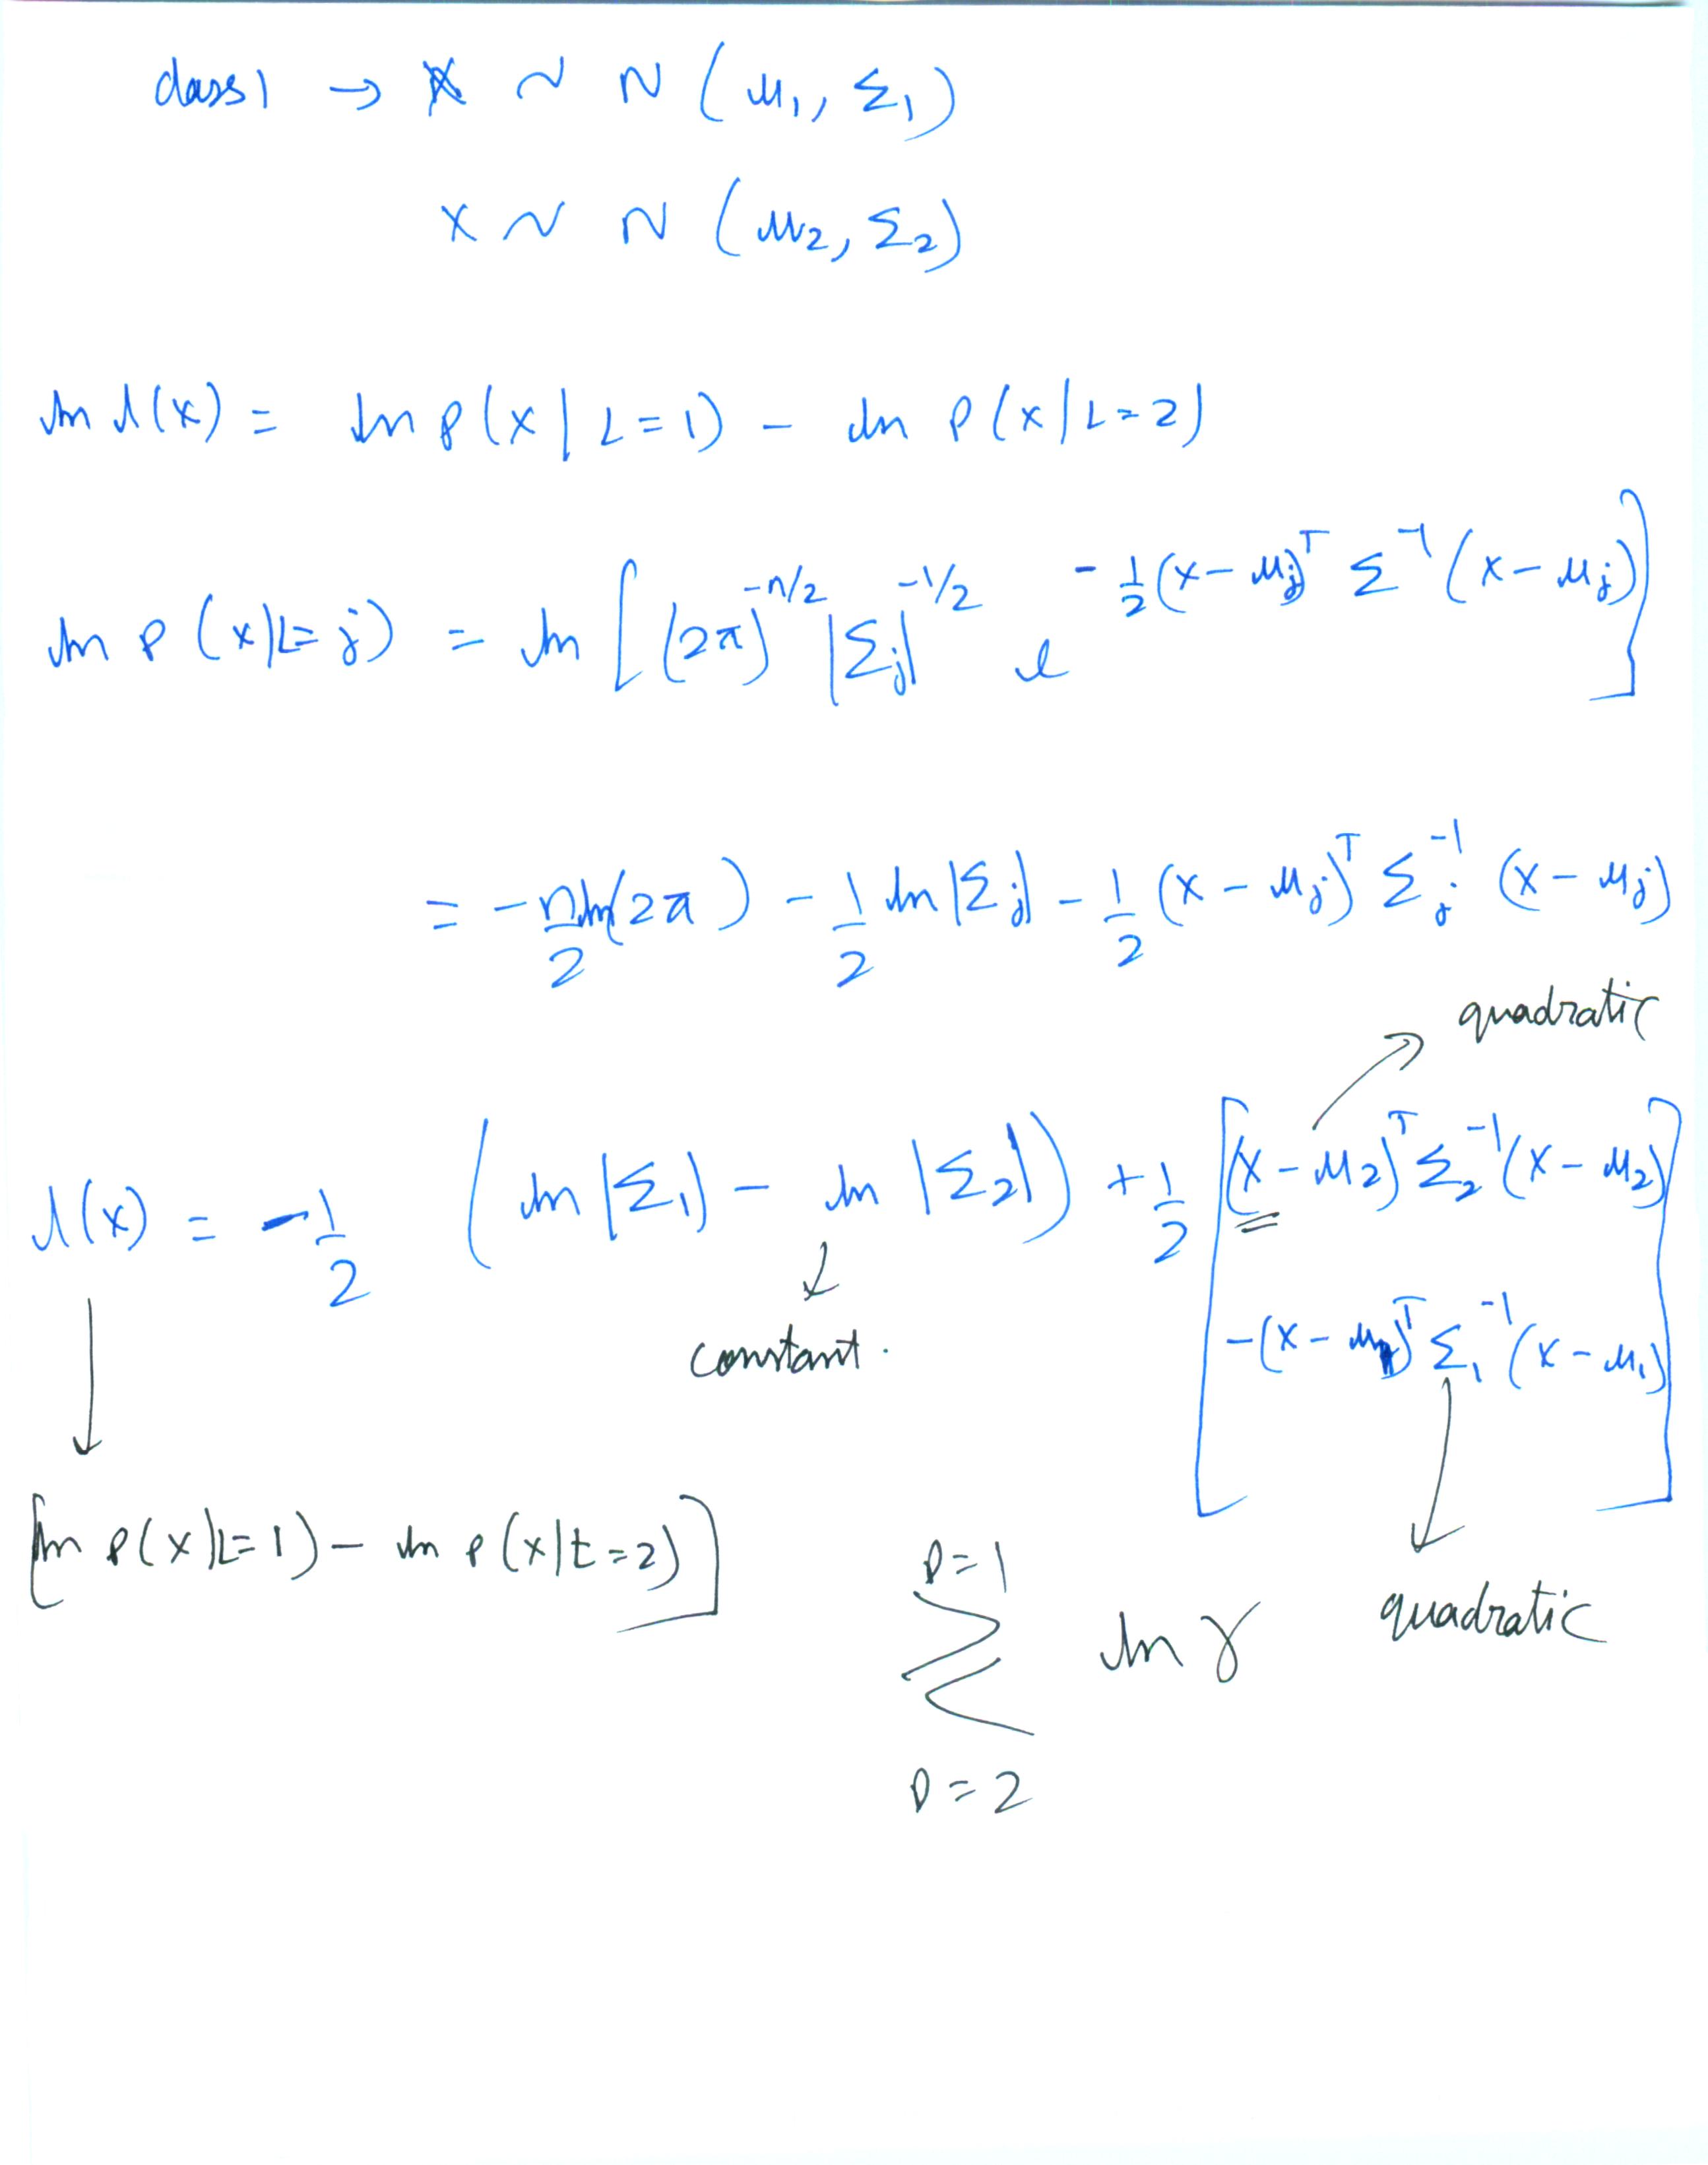 class 1 → X ~ N (μ₁, Σ₁)
X ~ N (μ₂, Σ₂)
ln Λ(x) = ln p(x | L=1) - ln p(x | L=2)
ln p (x|L=j) = ln [ (2π)^{-n/2} |Σⱼ|^{-1/2} e^{-1/2 (x-μⱼ)^T Σ^{-1} (x-μⱼ)} ]
= -n/2 ln(2π) - 1/2 ln |Σⱼ| - 1/2 (x-μⱼ)^T Σⱼ^{-1} (x-μⱼ)
quadratic
Λ(x) = -1/2 ( ln |Σ₁| - ln |Σ₂| ) + 1/2 [ (x-μ₂)^T Σ₂^{-1} (x-μ₂)
-(x-μ₁)^T Σ₁^{-1} (x-μ₁) ]
constant.
[ln p(x|L=1) - ln p(x|L=2)]
D=1
≷ ln γ
D=2
quadratic